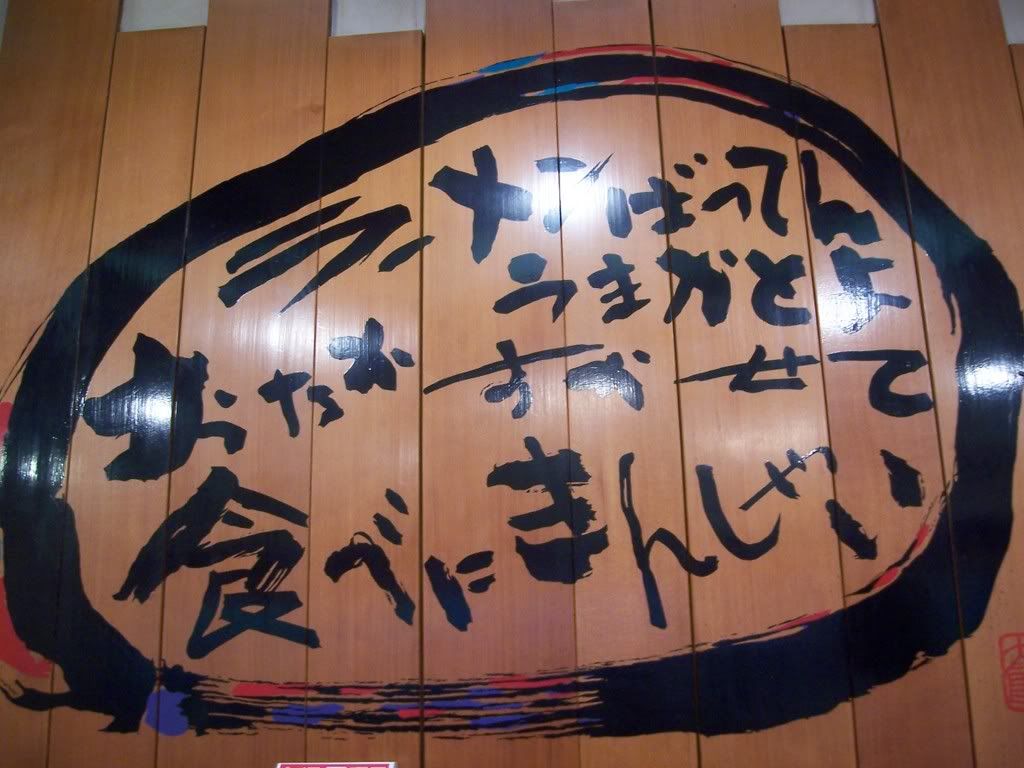 ラーメンばってん
うまかとよ
おなかすかせて
食べにきんしゃい